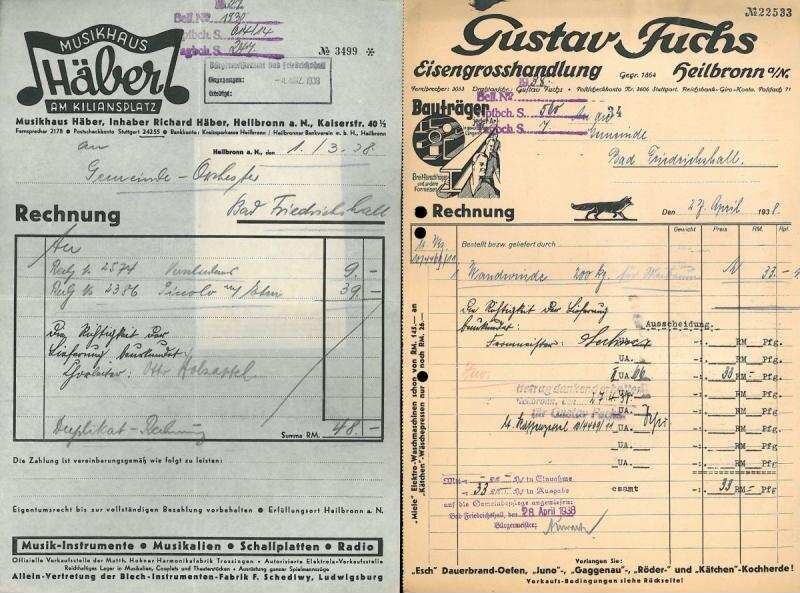 MUSIKHAUS
Häber
AM KILIANSPLATZ
1938
Beil. Nº
Tagbch. S. 244
№ 3499 *
Bürgermeisteramt Bad Friedrichshall
Eingegangen: MRZ. 1938
Musikhaus Häber, Inhaber Richard Häber, Heilbronn a. N., Kaiserstr. 40 ½
Fernsprecher 2178 ● Postscheckkonto Stuttgart 24255 ● Bankkonto: Kreissparkasse Heilbronn / Heilbronner Bankverein e. G. m. b. H., Heilbronn
An
Heilbronn a. N., den 1./3.38
Gemeinde-Orchester
Bad Friedrichshall
Rechnung
An
Rechg № 2574 9.-
Rechg № 2386 Piccolo 39.-
Die Richtigkeit der
Lieferung beurkundet
Chorleiter: Otto
Duplikat-Rechnung
Summe RM. 48.-
Die Zahlung ist vereinbarungsgemäß wie folgt zu leisten:
Eigentumsrecht bis zur vollständigen Bezahlung vorbehalten ● Erfüllungsort Heilbronn a. N.
Musik-Instrumente ● Musikalien ● Schallplatten ● Radio
Offizielle Verkaufsstelle der Matth. Hohner Harmonikafabrik Trossingen ● Autorisierte Elektrola-Verkaufsstelle
Reichhaltiges Lager in Musikalien, Couplets und Theaterstücken ● Ausrüstung ganzer Spielmannszüge
Allein-Vertretung der Blech-Instrumenten-Fabrik F. Schediwy, Ludwigsburg
№ 22533
Gustav Fuchs
Eisengrosshandlung Gegr. 1864 Heilbronn a/N.
Fernsprecher: 3053 Drahtanschr.: Gustav Fuchs Postscheckkonto Nr. 3606 Stuttgart. Reichsbank-Giro-Konto. Postfach 71
Bauträger
1938
Beil. Nº
Tagbch. S.
Gemeinde
Bad Friedrichshall.
Breitflanschträger
und andere
Formeisen
Rechnung
Den 27. April 1938.
Bestellt bezw. geliefert durch
Gewicht Preis RM. Rpf.
1 Wandwinde 200 kg. 33.-
Die Richtigkeit der Lieferung
beurkundet:
Ausscheidung:
Farrmeister:
UA. -: RM Pfg.
UA. -: 33 RM - Pfg
Betrag dankend erhalten
Heilbronn, den 27.4.38
für Gustav Fuchs
UA. -: RM - Pfg
UA. -: RM - Pfg
UA. -: RM - Pfg
Mit
in Einnahme
33 in Ausgabe
Gesamt -: 33 RM - Pfg
auf die Gemeindepflege angewiesen:
Bad Friedrichshall, den 28. April 1938
Bürgermeister:
„Miele" Elektro-Waschmaschinen schon von RM. 145.— an
„Kätchen"-Wäschepressen nur noch RM. 26.—
Verlangen Sie:
„Esch" Dauerbrand-Oefen, „Juno"-, „Gaggenau"-, „Röder"- und „Kätchen"-Kochherde!
Verkaufs-Bedingungen siehe Rückseite!